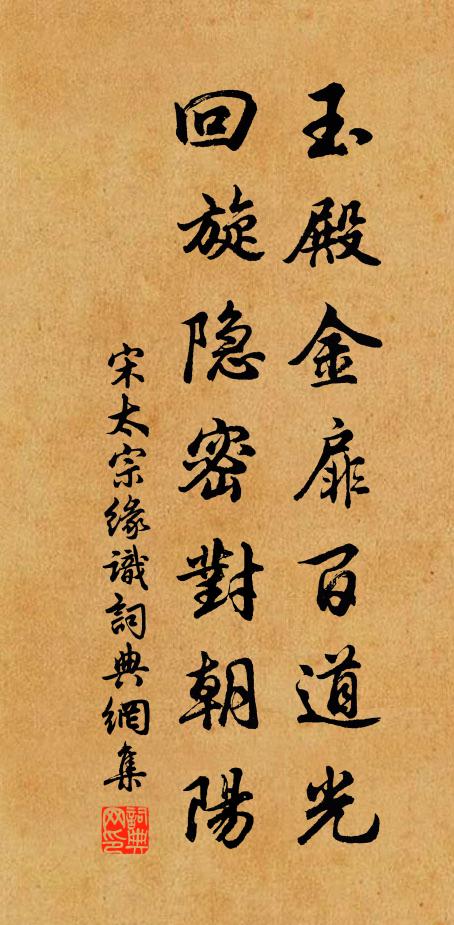 玉殿金扉百道光
回旋隐密對朝陽
宋太宗缘識詞典網集
詞典網印